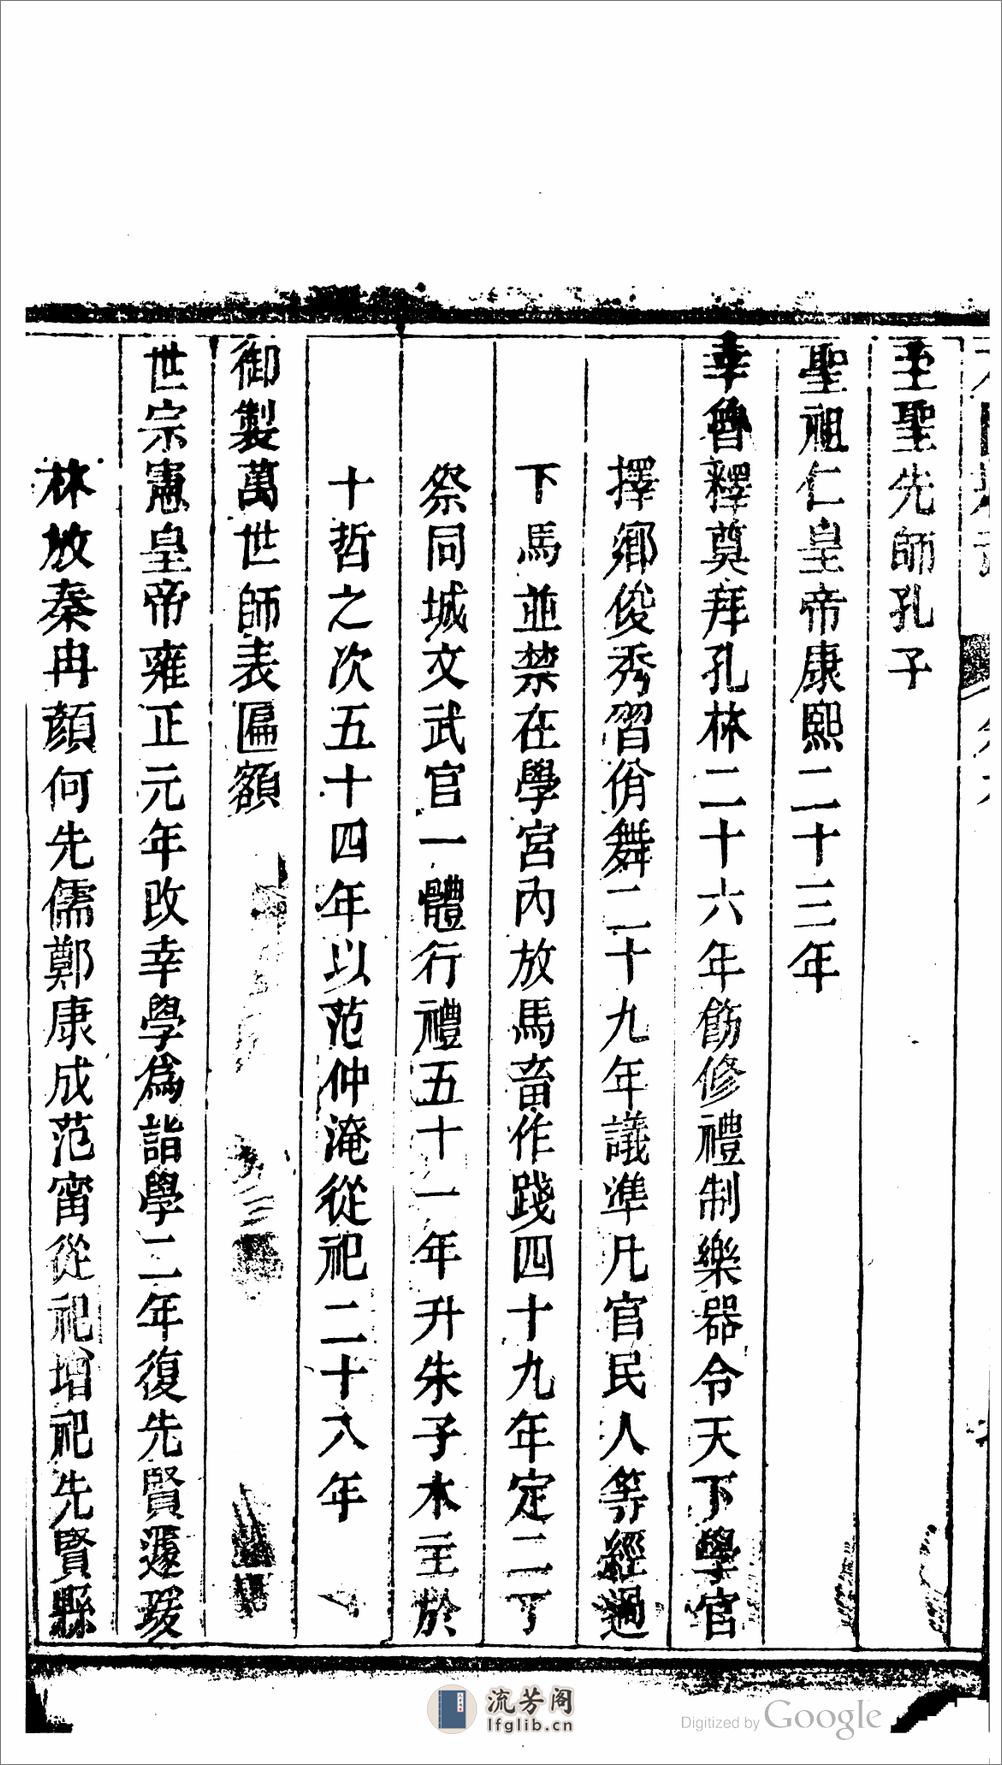 至聖先師孔子
聖祖仁皇帝康熙二十三年
幸魯釋奠拜孔林二十六年飭修禮制樂器令天下學官
擇鄉俊秀習佾舞二十九年議準凡官民人等經過
下馬並禁在學宮內放馬畜作踐四十九年定二丁
祭同城文武官一體行禮五十一年升朱子木主於
十哲之次五十四年以范仲淹從祀二十八年
御製萬世師表匾額
世宗憲皇帝雍正元年改幸學為詣學二年復先賢蘧瑗
林放秦冉顏何先儒鄭康成范甯從祀增祀先賢縣
流芳阁
lfglib.cn
Digitized by Google